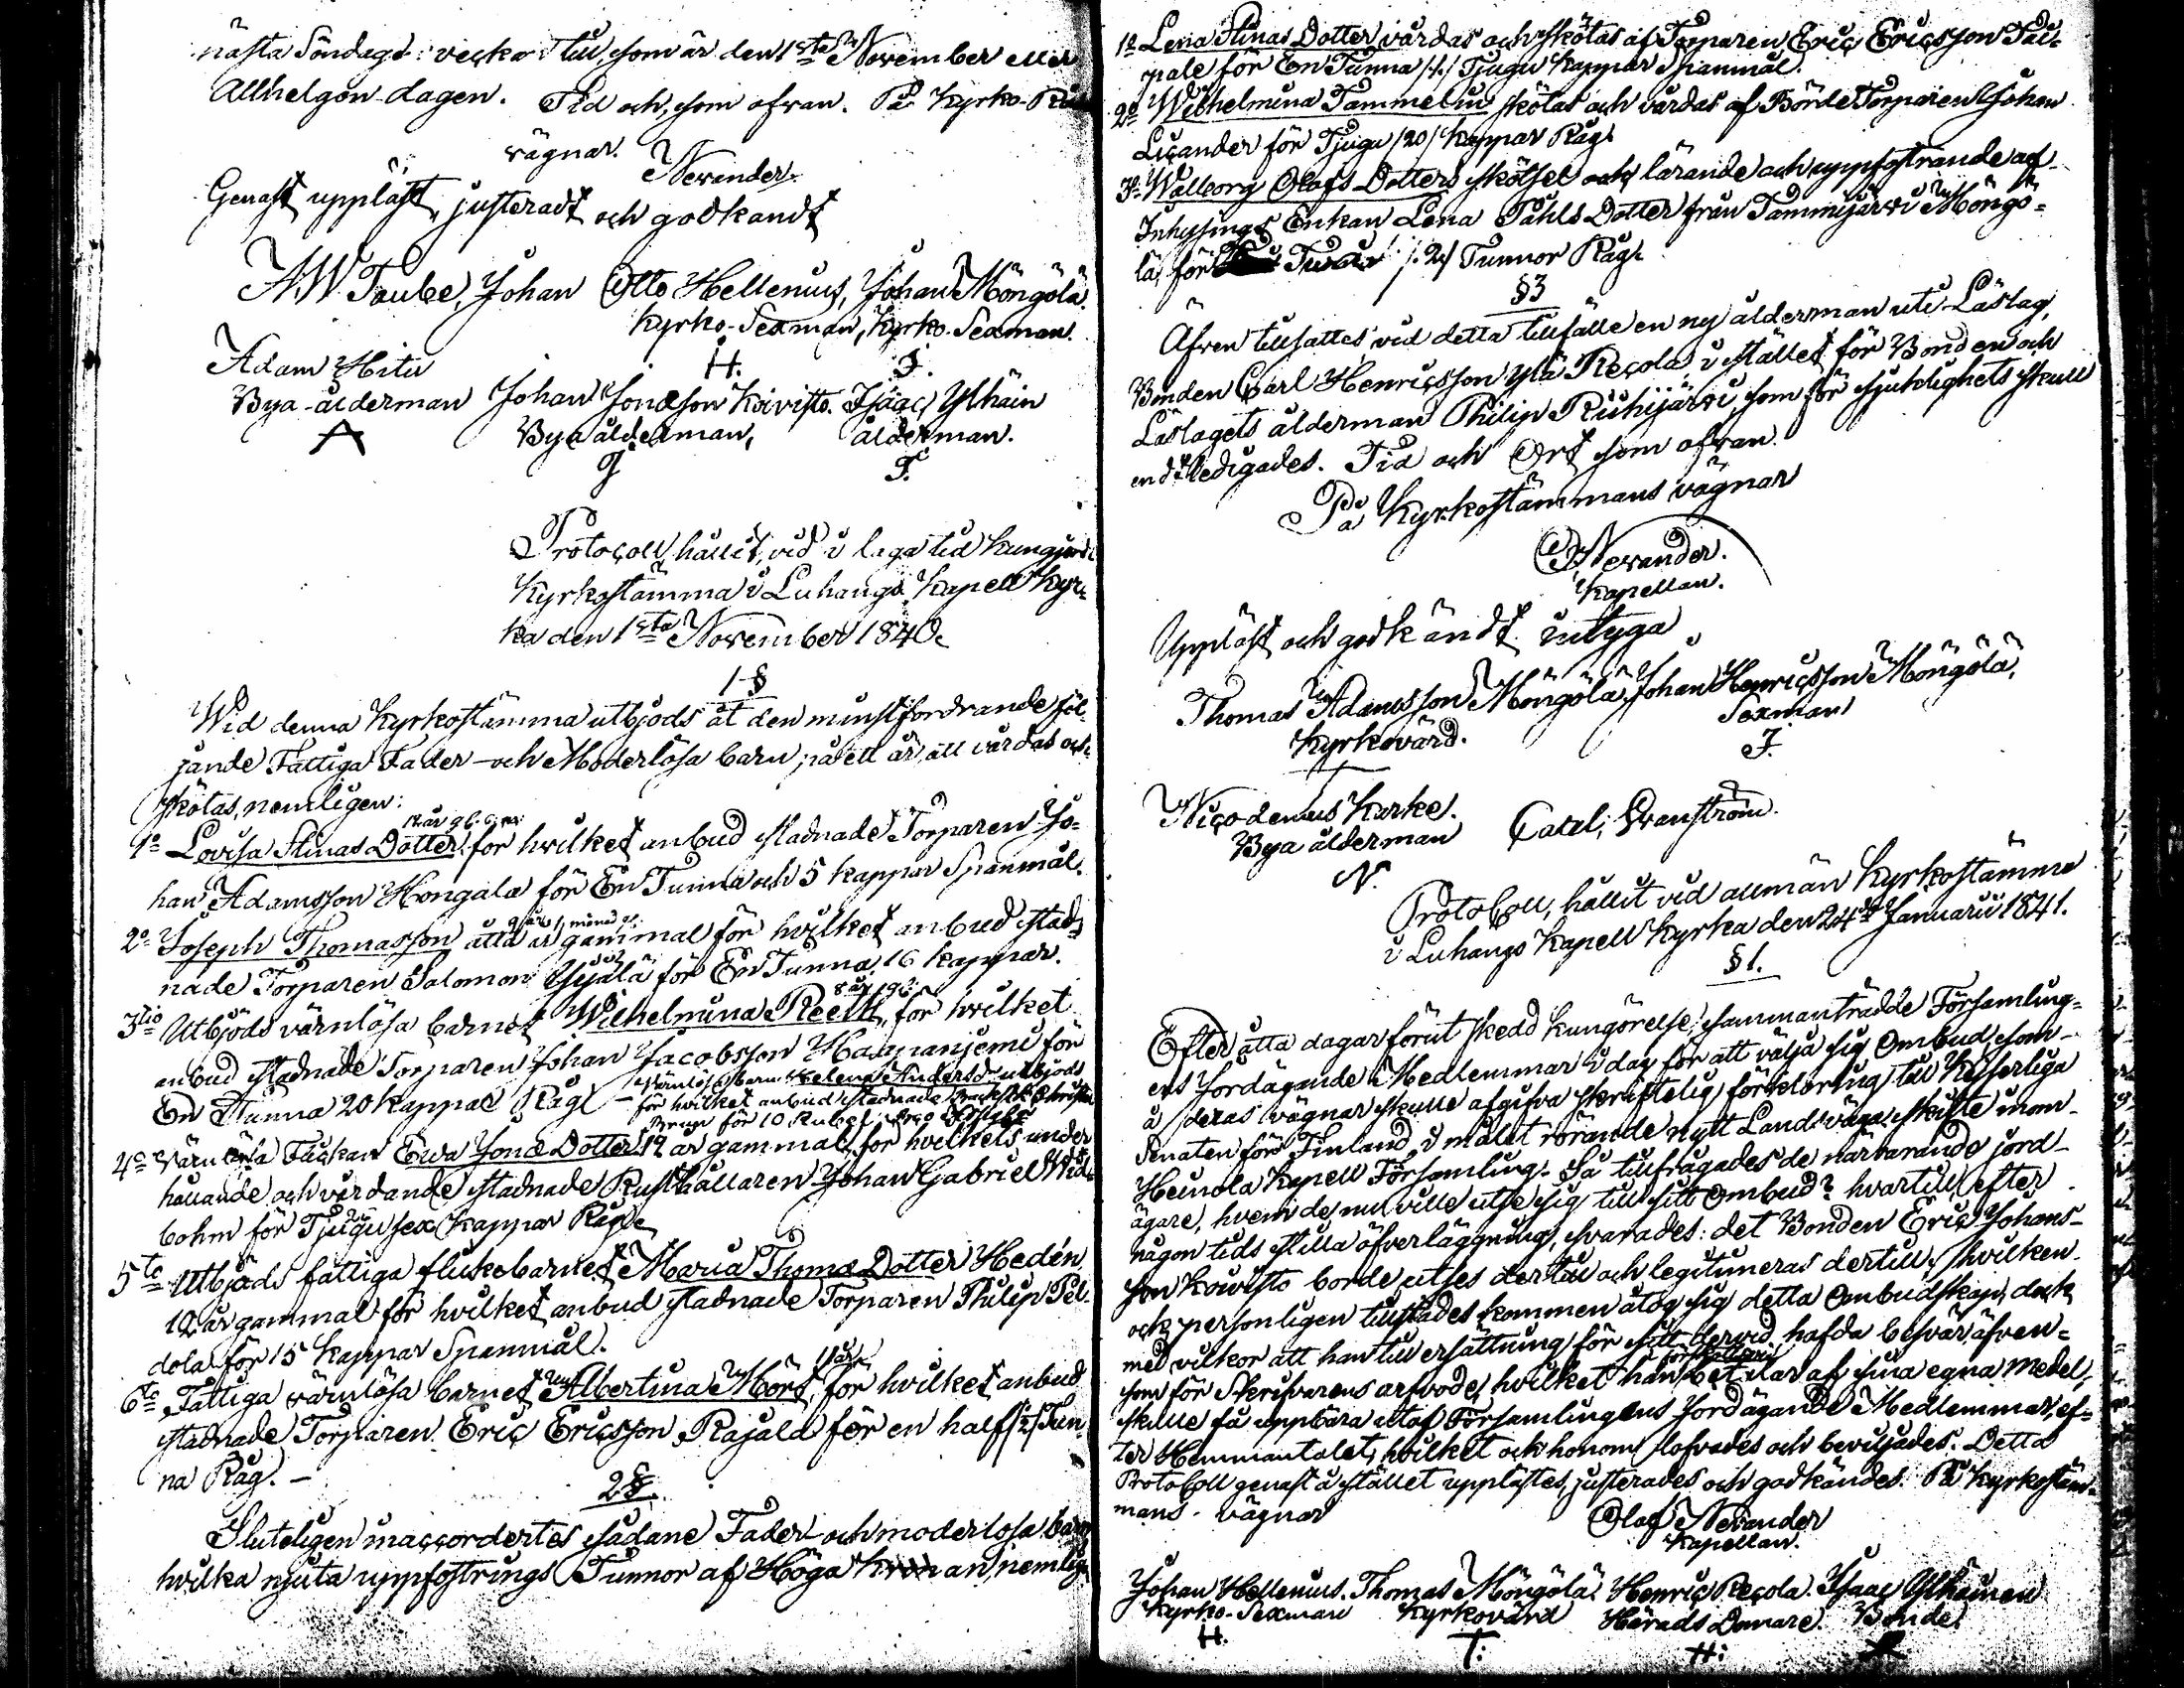 nästa Söndags: vecka till, som är den 1sta November eller
Allhelgon-dagen. Tid och, som ofvan. På Kyrko-
vägnar.
Nevander.
Genast uppläst, justeradt och godkandt
A.W. Taube, Johan Otto Hellenius, Johan Möngölä.
Kyrko-Sexman, Kyrko-Sexman.
Adam Hitu H. J.
Bya-ålderman Johan Jonæson Koivisto. Isaac Ylhäin
A Bya ålderman, ålderman.
J T.
Protocoll, hållit, vid i laga tid kungjord
Kyrkostämma i Luhangs Kapell Kyr-
ka den 1sta November 1840.
1 §
Wid denna Kyrkostämma utbjöds åt den minstfordrande föl-
jande Fattiga Fader- och Moderlösa barn, på ett år, att vårdas och
skötas, nemligen:
1o Lovisa Stinas Dotter, för hvilket anbud stadnade Torparen Jo-
han Adamsson Hongala för En Tunna och 5 kappar Spanmål.
9 år 1 månad gl.
2o Joseph Thomasson åtta år gammal för hvilket anbud stad-
nade Torparen Salomon Yijälä för En Tunna 16 kappar.
8 år gl.
3tio Utbjöds värnlösa barnet Wilhelmina Reeth, för hvilket
anbud stadnade Torparen Johan Jacobsson Haapaniemi för
En Tunna 20 Kappar Råg. – Värnlösa barn Helena Andersd. utbjöds
för hvilket anbud stadnade
för 10 Rubel
4o Värnlösa Flickan Ewa Jonæ Dotter 19 år gammal, för hvilkets under
hållande och vårdande stadnade Rusthållaren Johan Gabriel Wid-
bohm för Tjugu sex Kappar Råg.
5te Utbjöds fattiga flickebarnet Maria Thomæ Dotter Hedén
12 år gammal för hvilket anbud stadnade Torparen Philip Pel-
dola för 15 Kappar Spanmål.
11 år
6te Fattiga värnlösa barnet Albertina Mört, för hvilket anbud
stadnade Torparen Eric Ericsson Rajala för en half /½/ Tun-
na Råg. –
2 §.
Sluteligen inaccordertes sådane Fader- och moderlösa barn
hvilka njuta uppfostrings Tunnor af Höga Kronan, nemlig
1o Lena Stinas Dotter vårdas och skötas af Torparen Eric Ericsson Tai-
pale för En Tunna /1/ Tjugu kappar Spanmål.
2o Wilhelmina Tammelin skötas och vårdas af Börde Torparen Johan
Licander för Tjugu /20/ Kappar Råg.
3o Walborg Olofs Dotters skötsel och lärande och uppfostrande af
Inhysinges Enkan Lena Påhls Dotter från Tammijärvi Möngö-
lä, för /: 2/ Tunnor Råg.
§ 3
Äfven tillsattes vid detta tillfälle en ny ålderman uti Läslag,
Bonden Carl Henricsson Ylä Recola, i stället för Bonden och
Läslagets ålderman Philip Ruhijärvi, som för sjuklighets skull
endtledigades. Tid och Ort som ofvan.
På Kyrkostämmans vägnar
O. Nevander.
Kapellan.
Uppläst och godkändt intyga
Thomas Adamsson Möngölä, Johan Henricsson Möngölä,
Kyrkovärd. Sexman
J.
Nicodemus Karke. Carl, Granström.
Bya ålderman
N.
Protocoll, hållit vid allmän Kyrkostämma
i Luhangs Kapell Kyrka den 24de Januarii 1841.
§ 1.
Efter åtta dagar förut skedd kungörelse, sammanträdde Församling-
ens Jordägande Medlemmar i dag för att välja sig Ombud, som
å deras vägnar skulle afgifva skriftelig förklaring till Kejserliga
Senaten för Finland, i målet rörande nytt Landsvägs skifte inom
Heinola Kapell Församling. Så tillfrågades de närvarande jord-
ägare, hvem de nu ville utse sig till sitt Ombud? hvartill, efter
någon tids stilla öfverläggning, svarades: det Bonden Eric Johans-
son Kowisto borde utses dertill och legitimeras dertill, hvilken
ock personligen tillstädes kommen åtog sig detta Ombudskap, dock
med vilkor att han till ersättning för sitt dervid hafda besvär, äfven-
som för Skrifvarens arfvode, hvilket han betalar af sina egna medel,
skulle få uppbära utaf Församlingens Jordägande Medlemmar, ef-
ter Hemmantalet, hvilket ock honom lofvades och beviljades. Detta
Protocoll genast å stället upplästes, justerades och godkändes. På Kyrkostäm-
mans vägnar Olof Nevander
Kapellan.
Johan Hellenius. Thomas Möngölä. Henric Recola. Isaac Ylhäinen
Kyrko-Sexman Kyrkovärd Härads Domare. Bonde.
H. T: H: